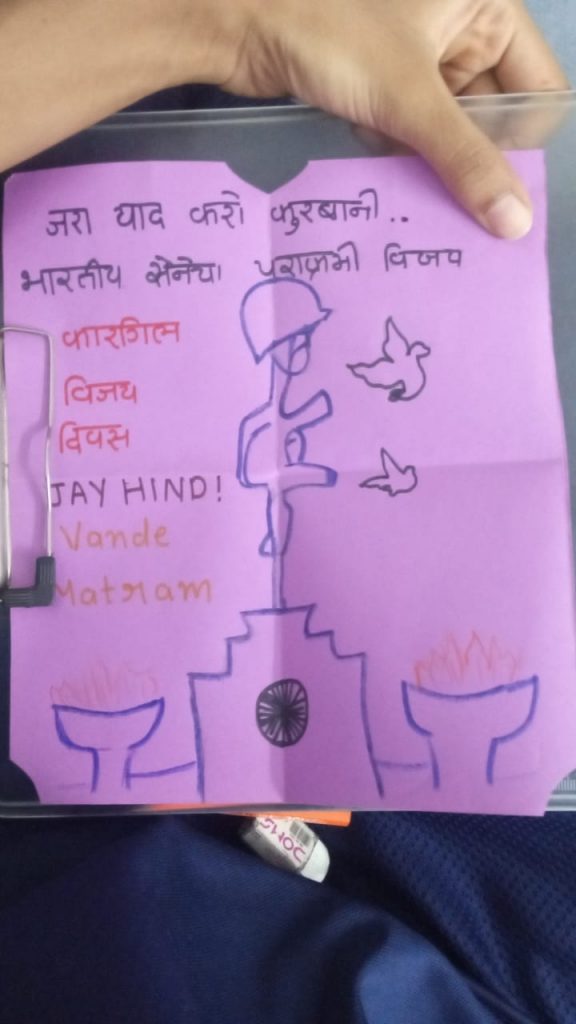 जरा याद करो कुरबानी..
भारतीय सेनेचा पराक्रमी विजय
कारगिल
विजय
दिवस
JAY HIND!
Vande
Matram
DOMS